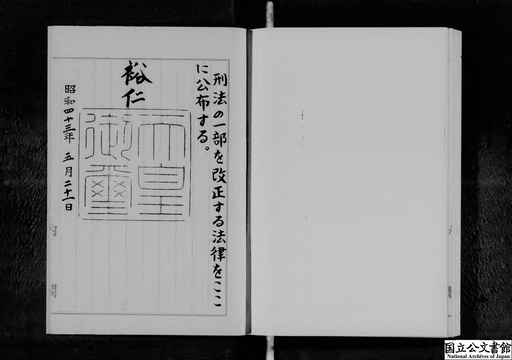 刑法の一部を改正する法律をここ
に公布する。
裕仁
天皇
御璽
昭和四十三年 五月二十一日
国立公文書館
National Archives of Japan